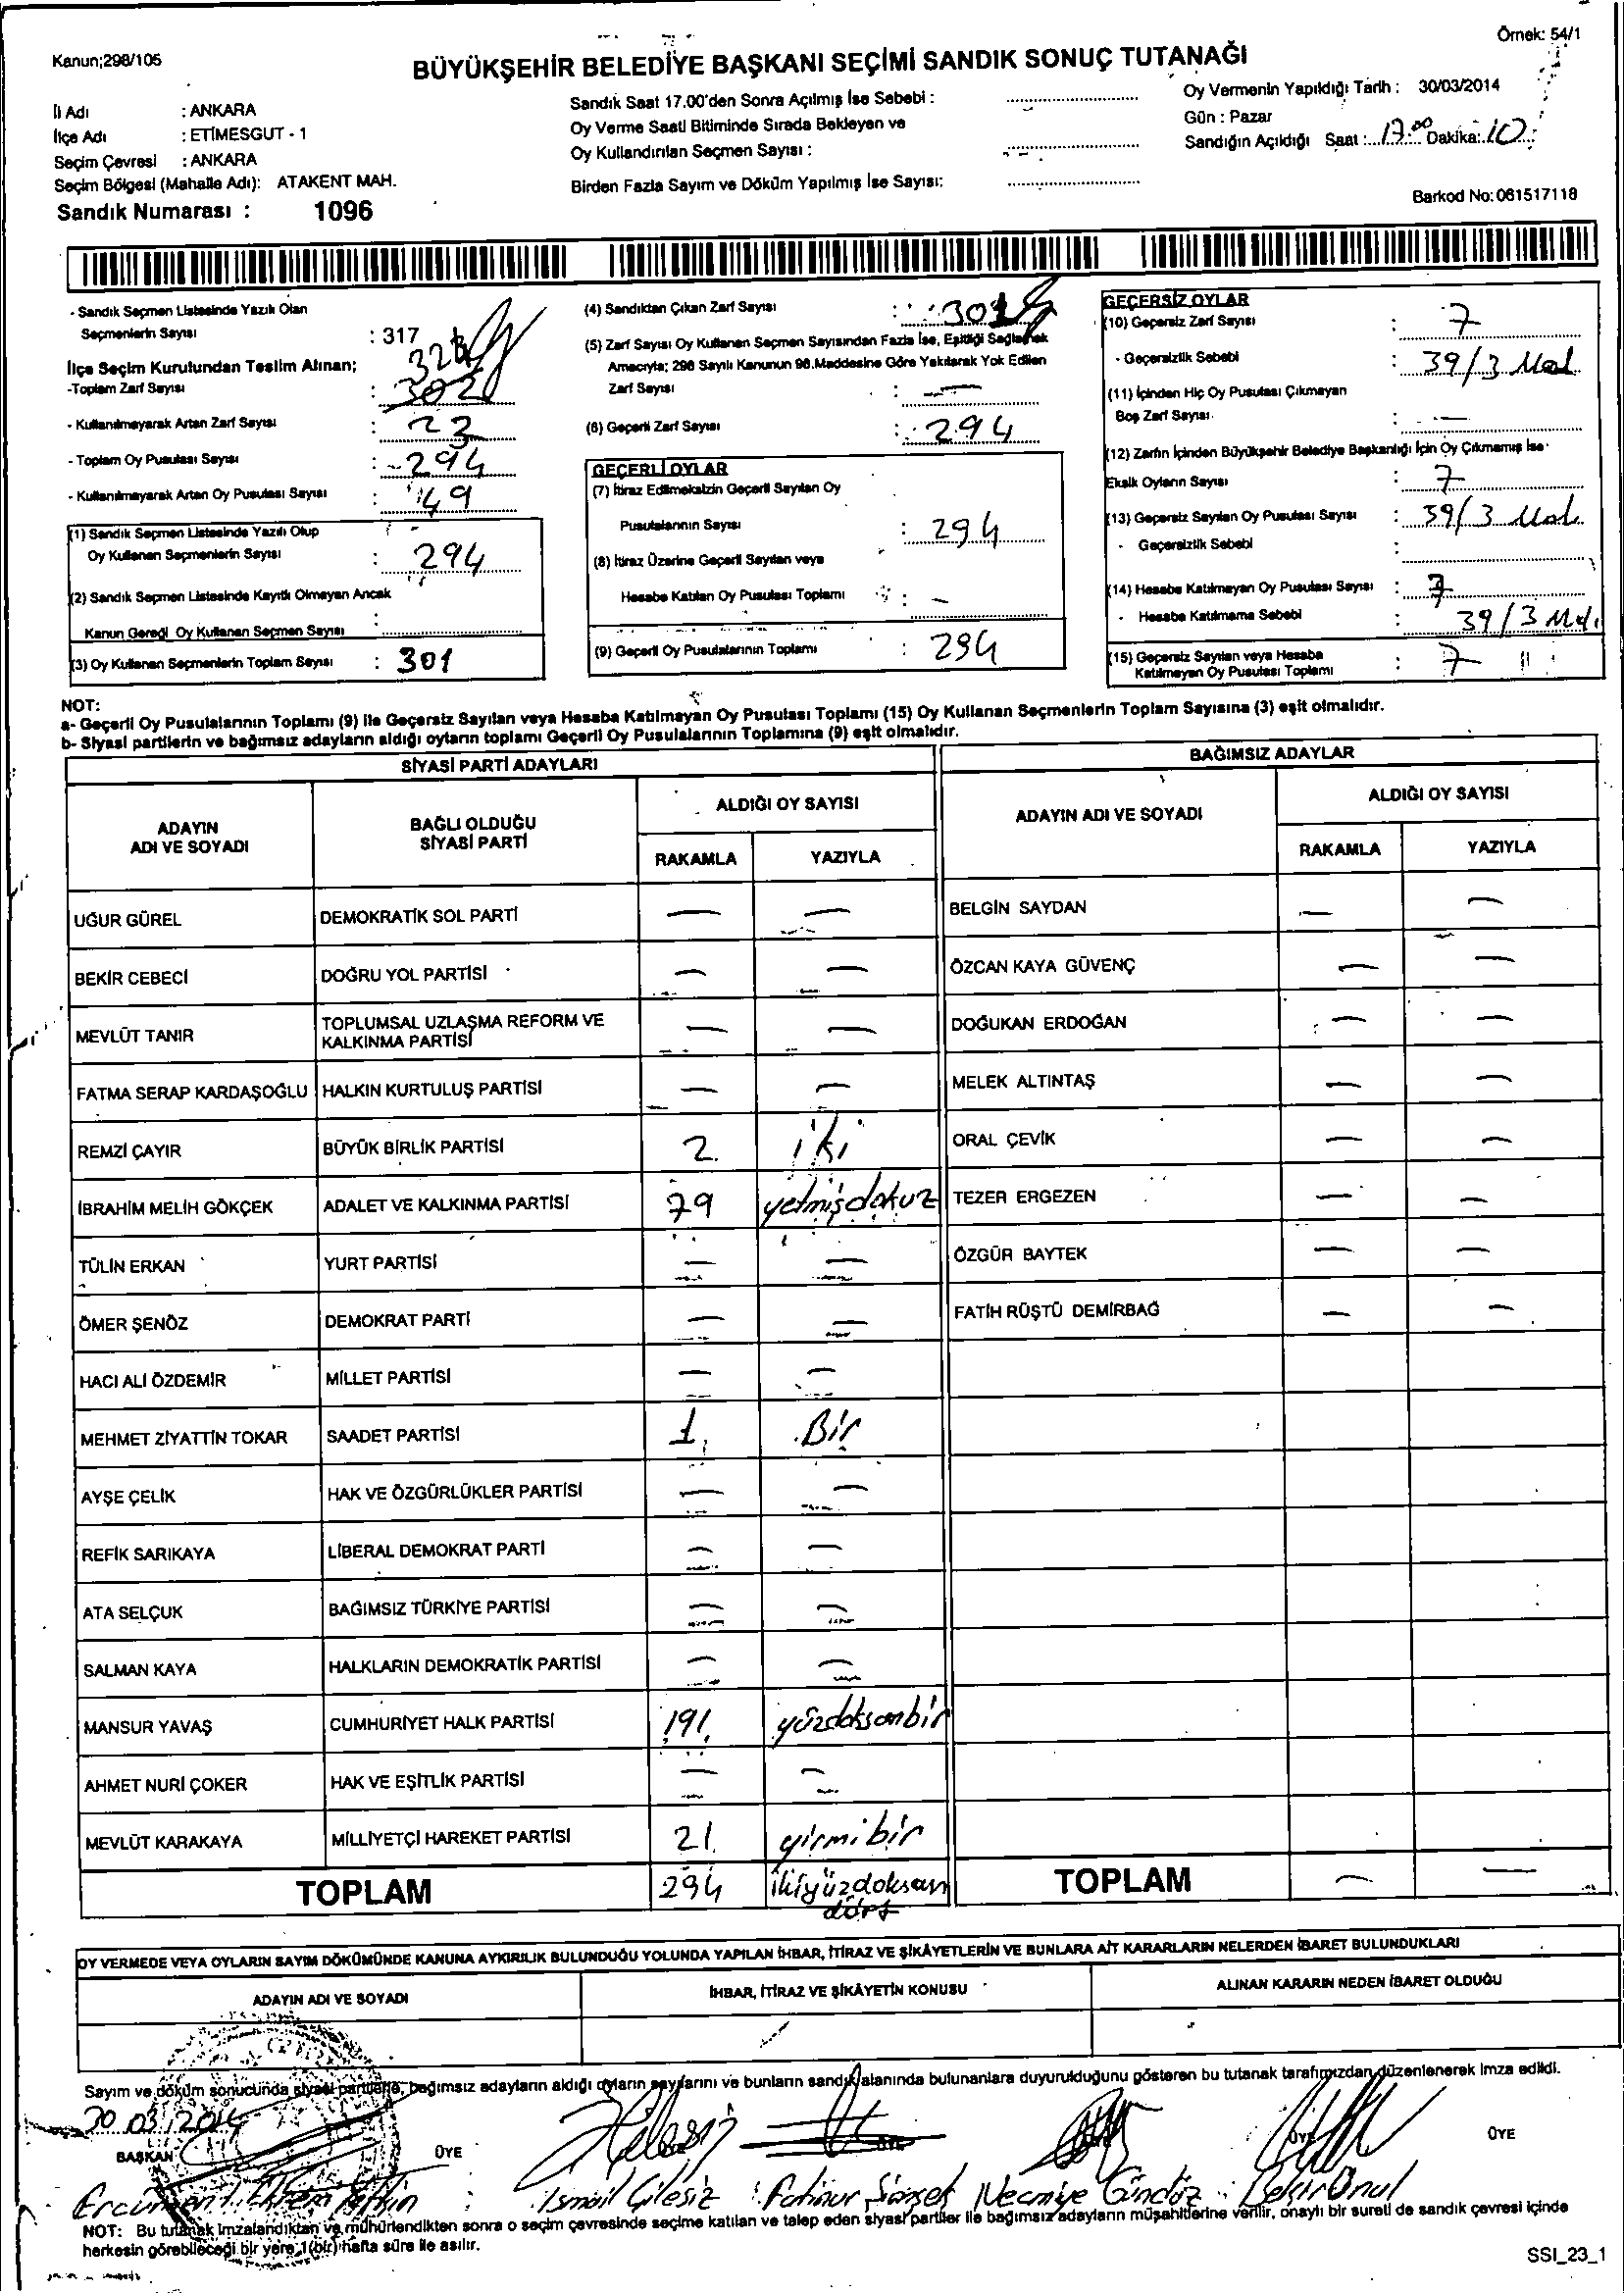 Örnek: 54/1
Kanun;298/105
BÜYÜKŞEHİR BELEDİYE BAŞKANI SEÇİMİ SANDIK SONUÇ TUTANAĞI
İl Adı : ANKARA
İlçe Adı : ETİMESGUT - 1
Seçim Çevresi : ANKARA
Seçim Bölgesi (Mahalle Adı): ATAKENT MAH.
Sandık Numarası : 1096
Sandık Saat 17.00'den Sonra Açılmış İse Sebebi :
Oy Verme Saati Bitiminde Sırada Bekleyen ve
Oy Kullandırılan Seçmen Sayısı :
Birden Fazla Sayım ve Döküm Yapılmış İse Sayısı:
Oy Vermenin Yapıldığı Tarih : 30/03/2014
Gün : Pazar
Sandığın Açıldığı Saat : 17.00 Dakika: 10
Barkod No: 061517118
- Sandık Seçmen Listesinde Yazılı Olan
Seçmenlerin Sayısı : 317
İlçe Seçim Kurulundan Teslim Alınan;
-Toplam Zarf Sayısı :
- Kullanılmayarak Artan Zarf Sayısı : 23
- Toplam Oy Pusulası Sayısı : 294
- Kullanılmayarak Artan Oy Pusulası Sayısı : 49
(1) Sandık Seçmen Listesinde Yazılı Olup
Oy Kullanan Seçmenlerin Sayısı : 294
(2) Sandık Seçmen Listesinde Kayıtlı Olmayan Ancak
Kanun Gereği Oy Kullanan Seçmen Sayısı :
(3) Oy Kullanan Seçmenlerin Toplam Sayısı : 301
(4) Sandıktan Çıkan Zarf Sayısı : 301
(5) Zarf Sayısı Oy Kullanan Seçmen Sayısından Fazla İse, Eşitliği Sağlamak
Amacıyla; 298 Sayılı Kanunun 98.Maddesine Göre Yakılarak Yok Edilen
Zarf Sayısı : —
(6) Geçerli Zarf Sayısı : 294
GEÇERLİ OYLAR
(7) İtiraz Edilmeksizin Geçerli Sayılan Oy
Pusulalarının Sayısı : 294
(8) İtiraz Üzerine Geçerli Sayılan veya
Hesaba Katılan Oy Pusulası Toplamı : —
(9) Geçerli Oy Pusulalarının Toplamı : 294
GEÇERSİZ OYLAR
(10) Geçersiz Zarf Sayısı : 7
- Geçersizlik Sebebi : 39/3 Mad.
(11) İçinden Hiç Oy Pusulası Çıkmayan
Boş Zarf Sayısı : —
(12) Zarfın İçinden Büyükşehir Belediye Başkanlığı İçin Oy Çıkmamış İse
Eksik Oyların Sayısı : 7
(13) Geçersiz Sayılan Oy Pusulası Sayısı : 39/3 Mad.
- Geçersizlik Sebebi :
(14) Hesaba Katılmayan Oy Pusulası Sayısı : 7
- Hesaba Katılmama Sebebi : 39/3 Md.
(15) Geçersiz Sayılan veya Hesaba
Katılmayan Oy Pusulası Toplamı : 7
NOT:
a- Geçerli Oy Pusulalarının Toplamı (9) ile Geçersiz Sayılan veya Hesaba Katılmayan Oy Pusulası Toplamı (15) Oy Kullanan Seçmenlerin Toplam Sayısına (3) eşit olmalıdır.
b- Siyasi partilerin ve bağımsız adayların aldığı oyların toplamı Geçerli Oy Pusulalarının Toplamına (9) eşit olmalıdır.
SİYASİ PARTİ ADAYLARI
BAĞIMSIZ ADAYLAR
ADAYIN ADI VE SOYADI
BAĞLI OLDUĞU SİYASİ PARTİ
ALDIĞI OY SAYISI
RAKAMLA YAZIYLA
ADAYIN ADI VE SOYADI
ALDIĞI OY SAYISI
RAKAMLA YAZIYLA
UĞUR GÜREL DEMOKRATİK SOL PARTİ — — BELGİN SAYDAN — —
BEKİR CEBECİ DOĞRU YOL PARTİSİ — — ÖZCAN KAYA GÜVENÇ — —
MEVLÜT TANIR TOPLUMSAL UZLAŞMA REFORM VE KALKINMA PARTİSİ — — DOĞUKAN ERDOĞAN — —
FATMA SERAP KARDAŞOĞLU HALKIN KURTULUŞ PARTİSİ — — MELEK ALTINTAŞ — —
REMZİ ÇAYIR BÜYÜK BİRLİK PARTİSİ 2 iki ORAL ÇEVİK — —
İBRAHİM MELİH GÖKÇEK ADALET VE KALKINMA PARTİSİ 79 yetmişdokuz TEZER ERGEZEN — —
TÜLİN ERKAN YURT PARTİSİ — — ÖZGÜR BAYTEK — —
ÖMER ŞENÖZ DEMOKRAT PARTİ — — FATİH RÜŞTÜ DEMİRBAĞ — —
HACI ALİ ÖZDEMİR MİLLET PARTİSİ — —
MEHMET ZİYATTİN TOKAR SAADET PARTİSİ 1 Bir
AYŞE ÇELİK HAK VE ÖZGÜRLÜKLER PARTİSİ — —
REFİK SARIKAYA LİBERAL DEMOKRAT PARTİ — —
ATA SELÇUK BAĞIMSIZ TÜRKİYE PARTİSİ — —
SALMAN KAYA HALKLARIN DEMOKRATİK PARTİSİ — —
MANSUR YAVAŞ CUMHURİYET HALK PARTİSİ 191 yüzdoksanbir
AHMET NURİ ÇOKER HAK VE EŞİTLİK PARTİSİ — —
MEVLÜT KARAKAYA MİLLİYETÇİ HAREKET PARTİSİ 21 yirmibir
TOPLAM 294 ikiyüzdoksan dört TOPLAM — —
OY VERMEDE VEYA OYLARIN SAYIM DÖKÜMÜNDE KANUNA AYKIRILIK BULUNDUĞU YOLUNDA YAPILAN İHBAR, İTİRAZ VE ŞİKÂYETLERİN VE BUNLARA AİT KARARLARIN NELERDEN İBARET BULUNDUKLARI
ADAYIN ADI VE SOYADI İHBAR, İTİRAZ VE ŞİKÂYETİN KONUSU ALINAN KARARIN NEDEN İBARET OLDUĞU
Sayım ve döküm sonucunda siyasi partilerle, bağımsız adayların aldığı oyların sayılarını ve bunların sandık alanında bulunanlara duyurulduğunu gösteren bu tutanak tarafımızdan düzenlenerek imza edildi.
30.03.2014
BAŞKAN ÜYE ÜYE ÜYE
İsmail Çilesiz Fatinur Şimşek Necmiye Gündöz Bekir Ünal
NOT: Bu tutanak imzalandıktan ve mühürlendikten sonra o seçim çevresinde seçime katılan ve talep eden siyasi partiler ile bağımsız adayların müşahitlerine verilir, onaylı bir sureti de sandık çevresi içinde
herkesin görebileceği bir yere 1(bir) hafta süre ile asılır.
SSI_23_1